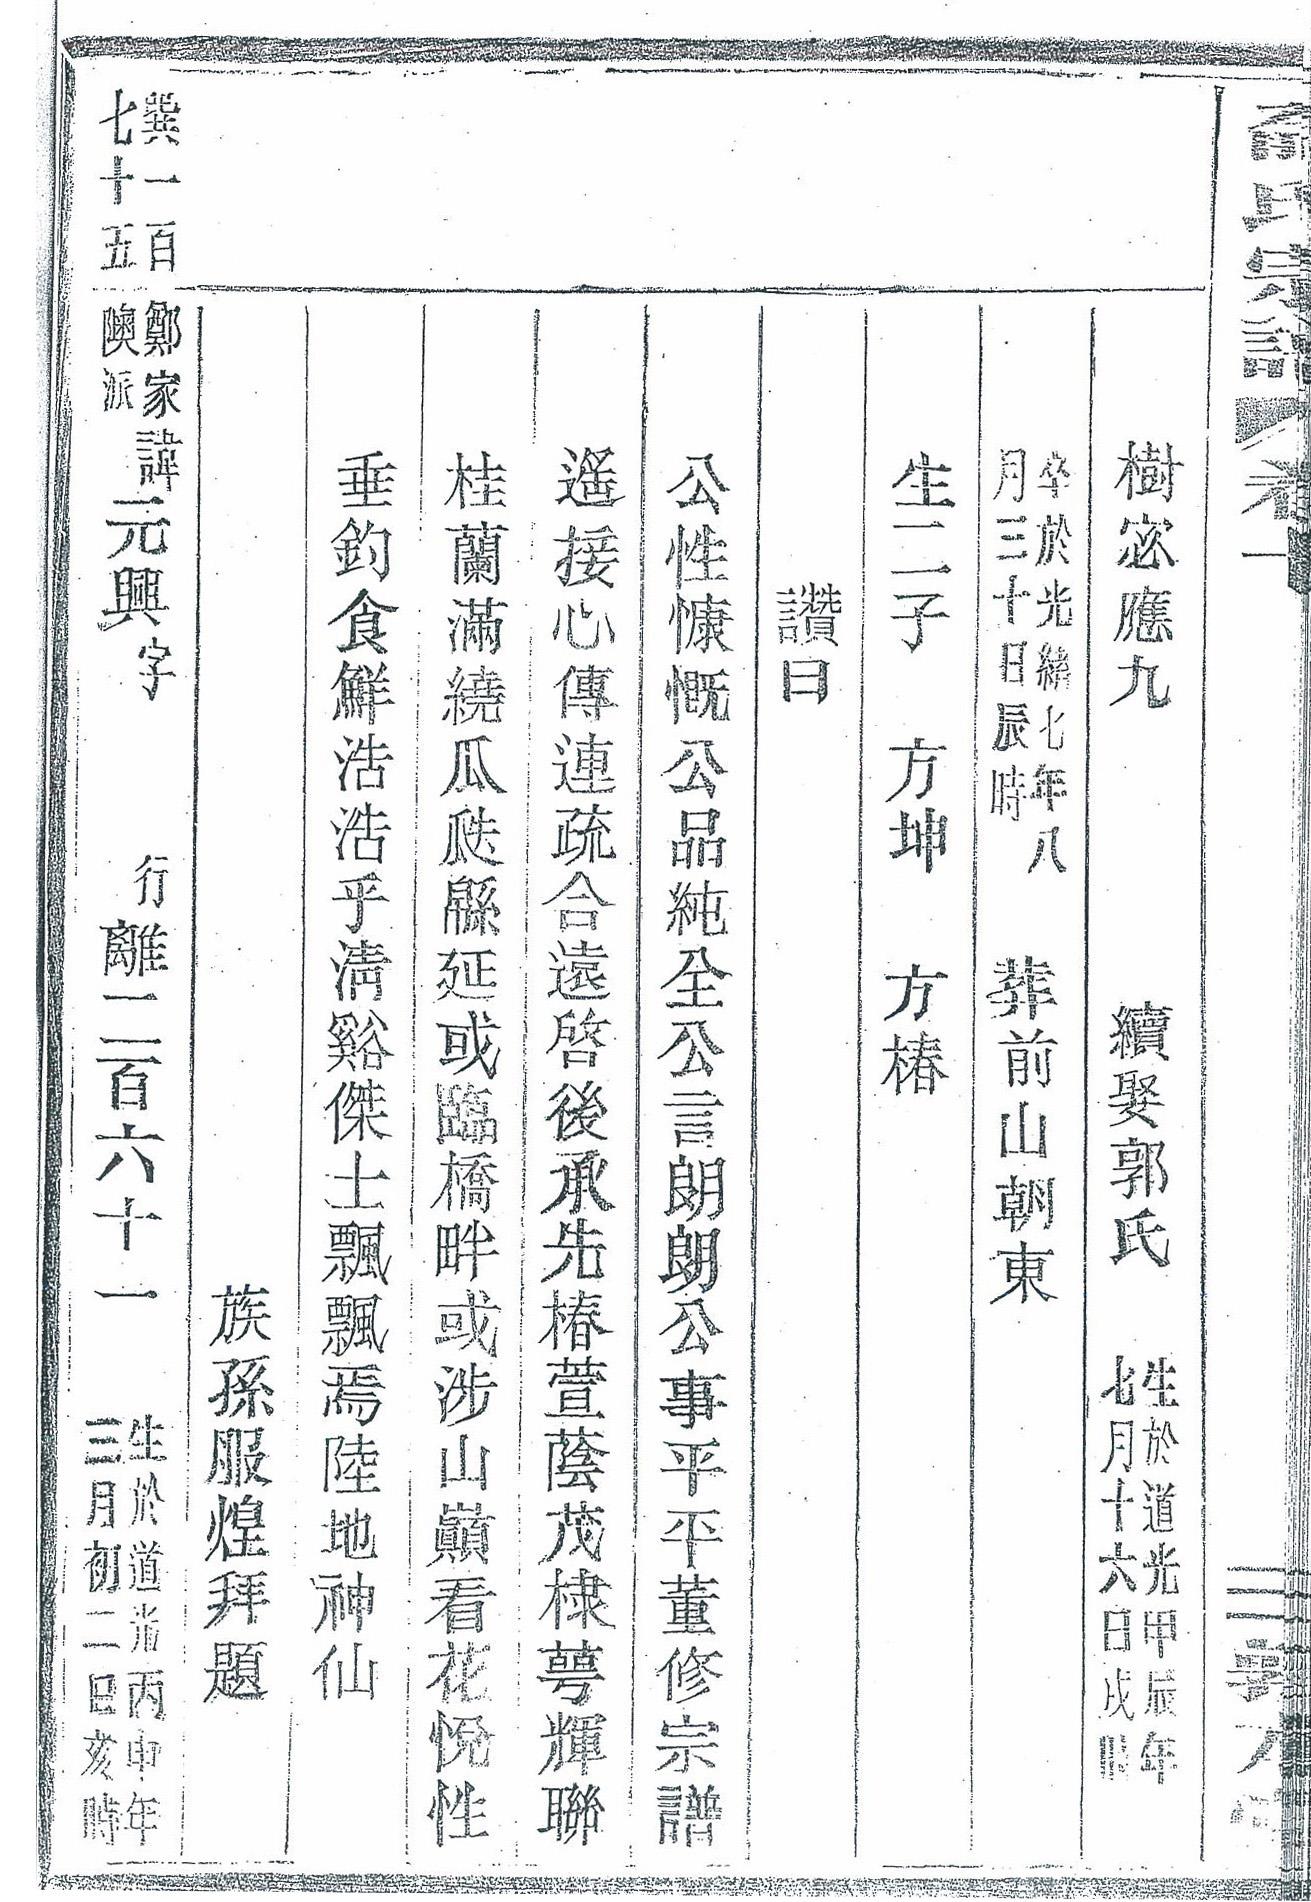 氏宗譜 卷一
樹宓應九 續娶郭氏 生於道光甲辰年
七月十六日戌時
卒於光緒七年八
月三十日辰時 葬前山朝東
生二子 方坤 方椿
讚曰
公性慷慨公品純全公言朗朗公事平平董修宗譜
遙接心傳連疏合遠啓後承先椿萱蔭茂棣萼輝聯
桂蘭滿繞瓜瓞緜延或臨橋畔或涉山巔看花悅性
垂釣食鮮浩浩乎淸谿傑士飄飄焉陸地神仙
族孫服煌拜題
巽一百
七十五
鄭家
隩派
諱元興字 行離二百六十一 生於道光丙申年
三月初二日亥時